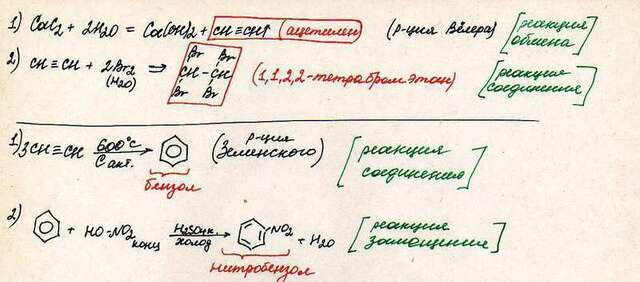 1) CaC2 + 2H2O = Ca(OH)2 + CH≡CH↑ (ацетилен) (р-ция Вёлера) [реакция обмена]
2) CH≡CH + 2Br2 (H2O) ⇒ Br Br CH–CH Br Br (1,1,2,2-тетрабромэтан) [реакция соединения]
1) 3CH≡CH 600°C C акт. → бензол (р-ция Зелинского) [реакция соединения]
2) + HO-NO2 конц H2SO4 к. холод → NO2 + H2O [реакция замещения]
нитробензол